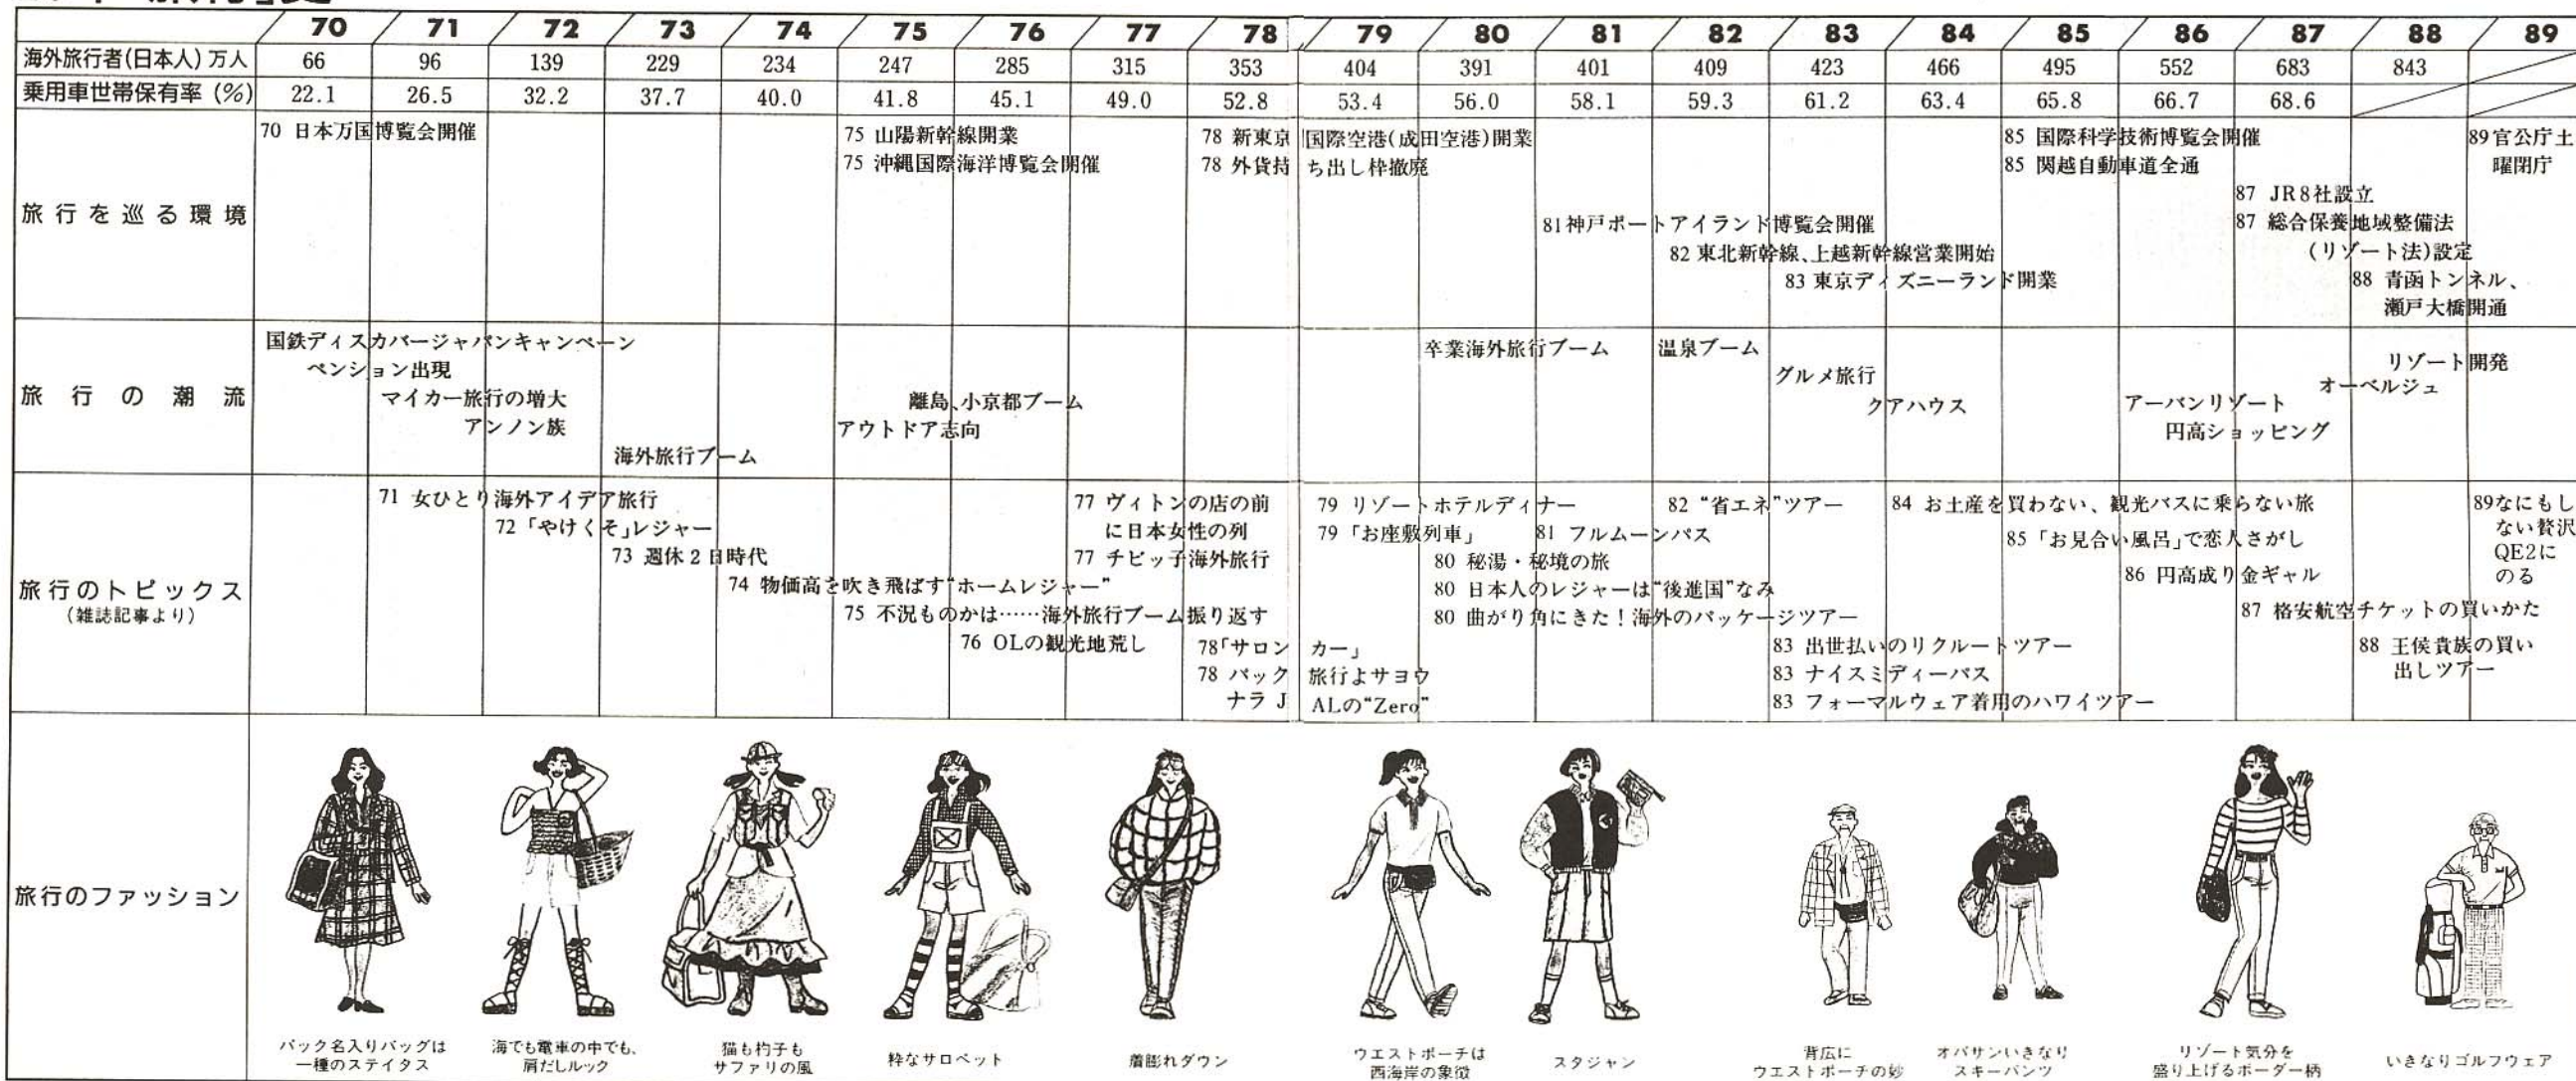 70 71 72 73 74 75 76 77 78 79 80 81 82 83 84 85 86 87 88 89
海外旅行者(日本人)万人 66 96 139 229 234 247 285 315 353 404 391 401 409 423 466 495 552 683 843
乗用車世帯保有率 (%) 22.1 26.5 32.2 37.7 40.0 41.8 45.1 49.0 52.8 53.4 56.0 58.1 59.3 61.2 63.4 65.8 66.7 68.6
旅行を巡る環境
70 日本万国博覧会開催
75 山陽新幹線開業
75 沖縄国際海洋博覧会開催
78 新東京国際空港(成田空港)開業
78 外貨持ち出し枠撤廃
81神戸ポートアイランド博覧会開催
82 東北新幹線、上越新幹線営業開始
83 東京ディズニーランド開業
85 国際科学技術博覧会開催
85 関越自動車道全通
87 JR8社設立
87 総合保養地域整備法
(リゾート法)設定
88 青函トンネル、
瀬戸大橋開通
89官公庁土
曜閉庁
旅行の潮流
国鉄ディスカバージャパンキャンペーン
ペンション出現
マイカー旅行の増大
アンノン族
海外旅行ブーム
離島、小京都ブーム
アウトドア志向
卒業海外旅行ブーム
温泉ブーム
グルメ旅行
クアハウス
アーバンリゾート
円高ショッピング
リゾート開発
オーベルジュ
旅行のトピックス
(雑誌記事より)
71 女ひとり海外アイデア旅行
72「やけくそ」レジャー
73 週休2日時代
74 物価高を吹き飛ばす“ホームレジャー”
75 不況ものかは……海外旅行ブーム振り返す
76 OLの観光地荒し
77 ヴィトンの店の前
に日本女性の列
77 チビッ子海外旅行
78「サロンカー」
78 パック旅行よサヨウ
ナラ JALの“Zero”
79 リゾートホテルディナー
79「お座敷列車」
80 秘湯・秘境の旅
80 日本人のレジャーは“後進国”なみ
80 曲がり角にきた!海外のパッケージツアー
81 フルムーンパス
82 “省エネ”ツアー
83 出世払いのリクルートツアー
83 ナイスミディーパス
83 フォーマルウェア着用のハワイツアー
84 お土産を買わない、観光バスに乗らない旅
85「お見合い風呂」で恋人さがし
86 円高成り金ギャル
87 格安航空チケットの買いかた
88 王侯貴族の買い
出しツアー
89なにもし
ない贅沢
QE2に
のる
旅行のファッション
パック名入りバッグは
一種のステイタス
海でも電車の中でも、
肩だしルック
猫も杓子も
サファリの風
粋なサロペット
着膨れダウン
ウエストポーチは
西海岸の象徴
スタジャン
背広に
ウエストポーチの妙
オバサンいきなり
スキーパンツ
リゾート気分を
盛り上げるボーダー柄
いきなりゴルフウェア